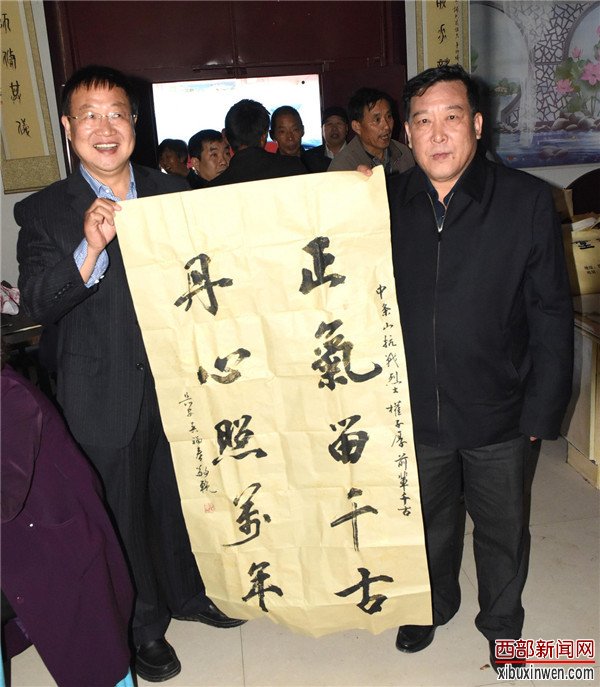 中条山抗战烈士權子厚前輩千古
正氣留千古
丹心照萬年
西部新闻网
xibuxinwen.com